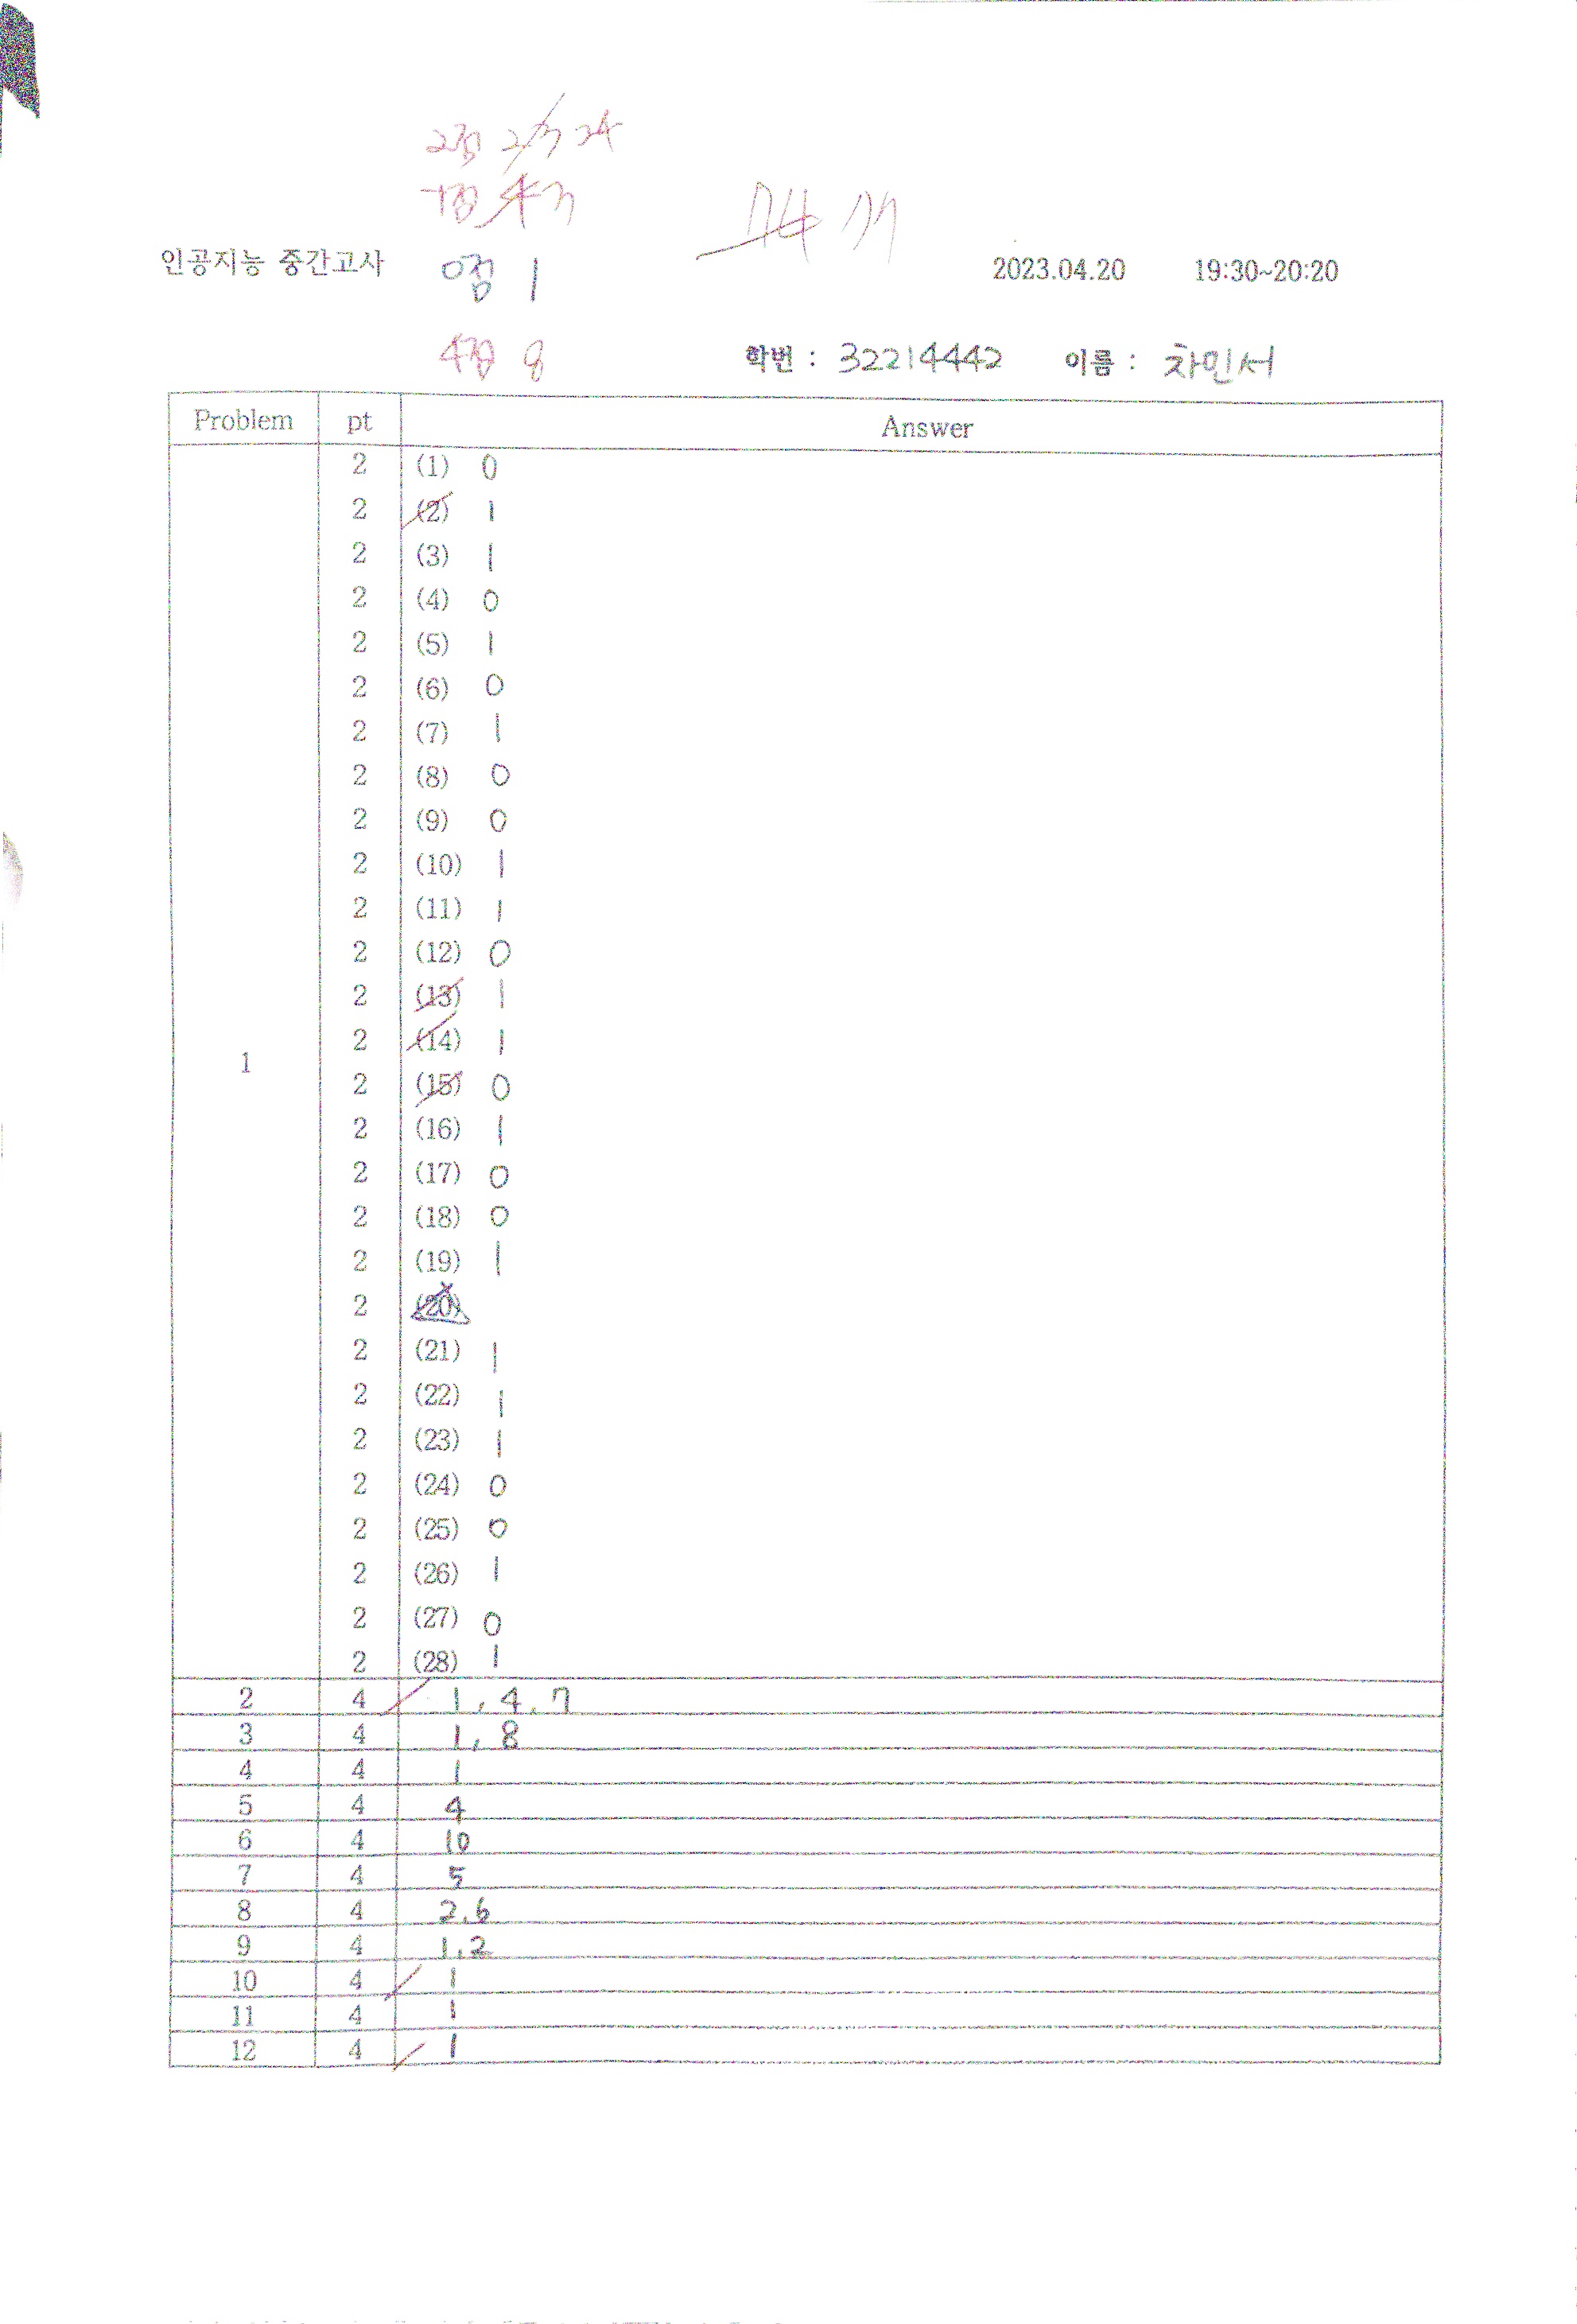 2점 23 24
-1점 4 3
74 77
인공지능 중간고사 0점 1 2023.04.20 19:30~20:20
4점 8 학번 : 32214442 이름 : 차민서
Problem pt Answer
2 (1) 0
2 (2) 1
2 (3) 1
2 (4) 0
2 (5) 1
2 (6) 0
2 (7) 1
2 (8) 0
2 (9) 0
2 (10) 1
2 (11) 1
2 (12) 0
2 (13) 1
2 (14) 1
1 2 (15) 0
2 (16) 1
2 (17) 0
2 (18) 0
2 (19) 1
2 (20)
2 (21) 1
2 (22) 1
2 (23) 1
2 (24) 0
2 (25) 0
2 (26) 1
2 (27) 0
2 (28) 1
2 4 1, 4, 7
3 4 1, 8
4 4 1
5 4 4
6 4 10
7 4 5
8 4 2,6
9 4 1,2
10 4 1
11 4 1
12 4 1